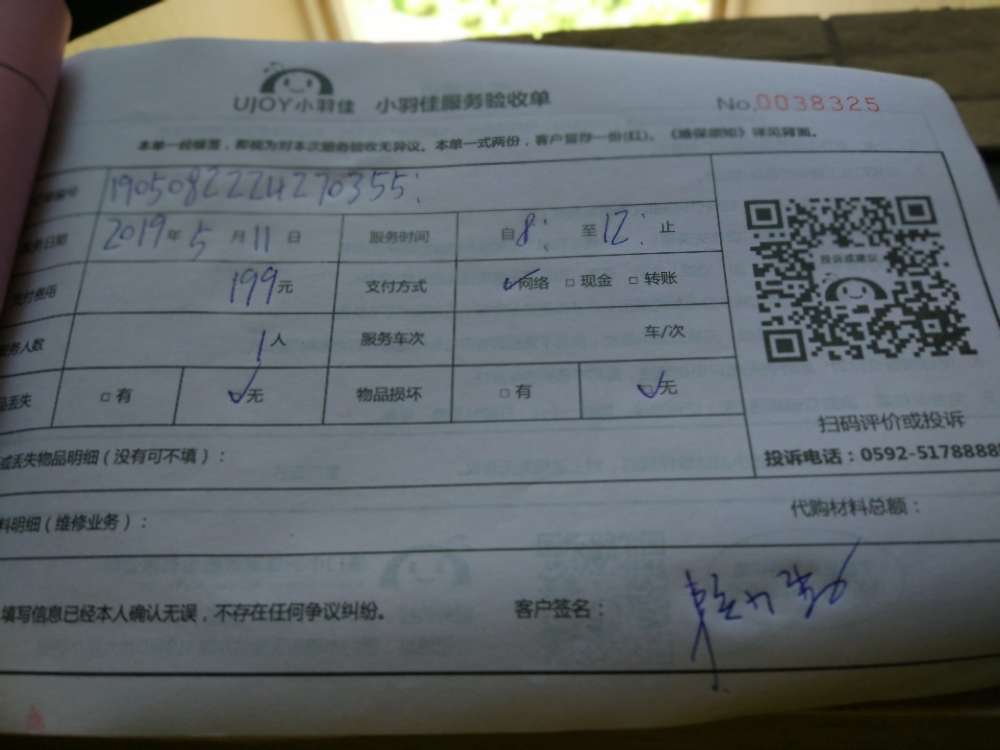 UJOY小羽佳 小羽佳服务验收单 No.0038325
本单一经填写，即视为对本次服务验收无异议。本单一式两份，客户留存一份(红)。《维保须知》详见背面。
编号 1905082224270355
日期 2019年5月11日 服务时间 自8: 至12: 止
支付费用 199元 支付方式 ✓网络 □现金 □转账
服务人数 1人 服务车次 车/次
品丢失 □有 ✓无 物品损坏 □有 ✓无
投诉或建议
扫码评价或投诉
投诉电话：0592-5178888
或丢失物品明细（没有可不填）：
料明细（维修业务）： 代购材料总额：
填写信息已经本人确认无误，不存在任何争议纠纷。 客户签名：